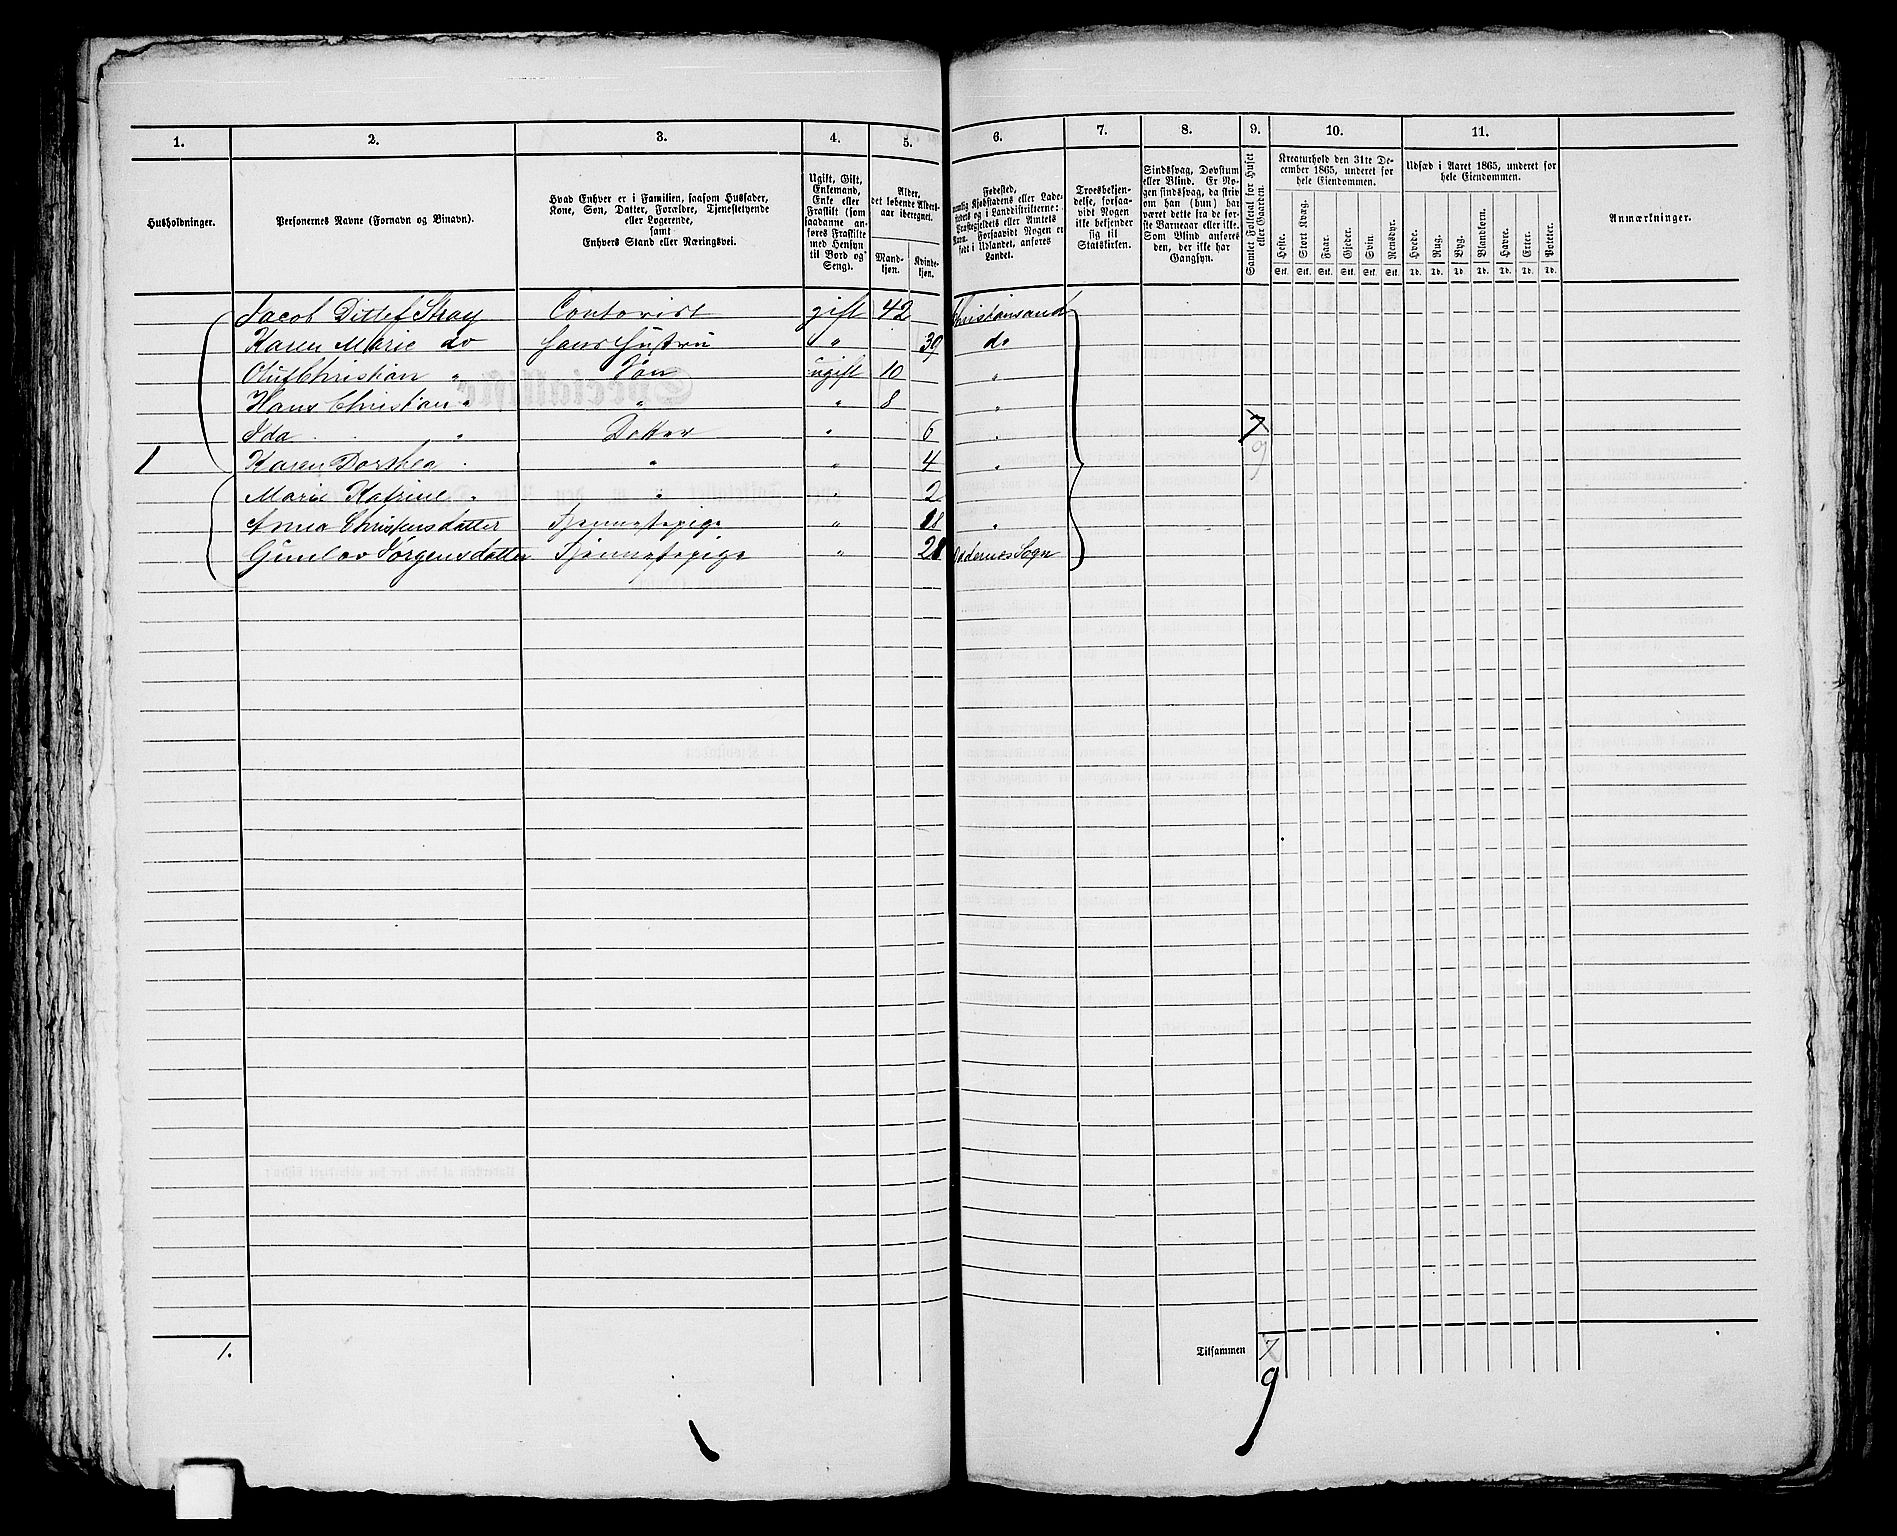 1. 2. 3. 4. 5. 6. 7. 8. 9. 10. 11.
Husholdninger.
Personernes Navne (Fornavn og Binavn).
Hvad Enhver er i Familien, saasom Husfader,
Kone, Søn, Datter, Forældre, Tjenestetyende
eller Logerende,
samt
Enhvers Stand eller Næringsvei.
Ugift, Gift,
Enkemand,
Enke eller
Fraskilt (som
saadanne an-
føres Fraskilte
med Hensyn
til Bord og
Seng).
Alder,
det løbende Alders-
aar iberegnet.
Mand-
kjøn.
Kvinde-
kjøn.
Fødested,
nemlig Kjøbstadens eller Lade-
stedets og i Landdistrikterne:
Præstegjeldets eller Amtets
Navn. Forsaavidt Nogen er
født i Udlandet, anføres
Landet.
Troesbekjen-
delse, forsaa-
vidt Nogen
ikke bekjender
sig til
Statskirken.
Sindssvag, Døvstum
eller Blind. Er No-
gen sindssvag, da skriv
om han (hun) har
været dette fra de for-
ste Barneaar eller ikke.
Som Blind anføres
den, der ikke har
Gangsyn.
Samlet Folketal for Huset
eller Gaarden.
Kreaturhold den 31te De-
cember 1865, underet for
hele Eiendommen.
Heste. Stort Kvæg. Faar. Gjeder. Svin. Rensdyr.
Stk. Stk. Stk. Stk. Stk. Stk.
Udsæd i Aaret 1865, underet for
hele Eiendommen.
Hvede. Rug. Byg. Blandkorn. Havre. Erter. Poteter.
Td. Td. Td. Td. Td. Td. Td.
Anmærkninger.
Jacob Ditlef Stray Contorist gift 42 Christiansand
Karen Marie do Hans Hustru " 39 do
Oluf Christian " Søn ugift 10 "
Hans Christian " " " 8 "
Ida " Datter " 6 " 7
1 Karen Dorthea " " 4 " 9
Marie Katrine " " " 2 "
Anna Christensdatter Tjenestepige " 18 "
Gunlov Jørgensdatter Tjenestepige " Sogn
1. Tilsammen 7
9